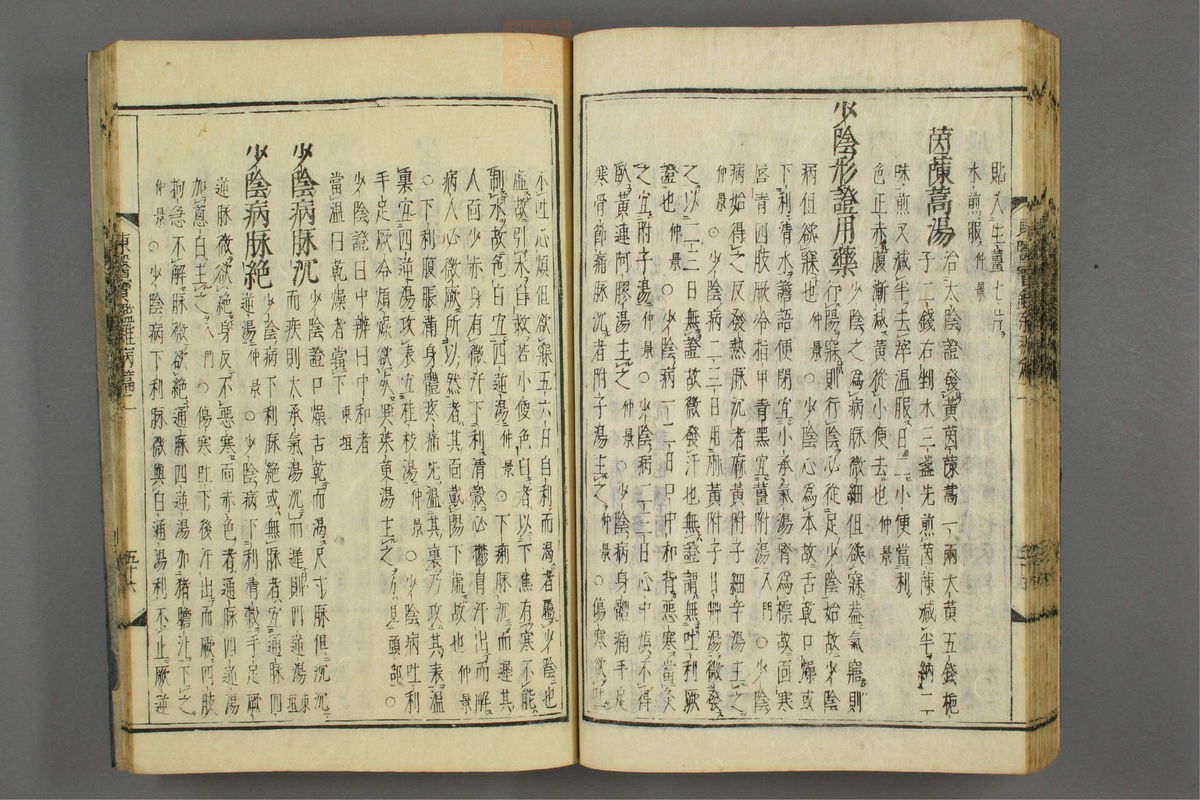 貼入生薑七片
水煎服仲景
茵蔯蒿湯治太陰證發黃茵蔯蒿一兩大黃五錢梔
子二錢右剉水三盞先煎茵蔯減半納二
味煎又減半去滓溫服日二小便當利
色正赤腹漸減黃從小便去也仲景
少陰形證用藥少陰之爲病脉微細但欲寐盖氣寤則
行陽寐則行陰必從足少陰始故少陰
病但欲寐也仲景○少陰心爲本故舌乾口燥或
下利清水譫語便閉宜小承氣湯腎爲標故面寒
唇青四肢厥冷指甲青黑宜薑附湯入門○少陰
病始得之反發熱脉沉者麻黃附子細辛湯主之
仲景○少陰病二三日用麻黃附子甘艸湯微發
之以二三日無證故微發汗也無證謂無吐利厥
證也仲景○少陰病一二日口中和背惡寒當灸
之宜附子湯仲景○少陰病二三日心中煩不得
臥黃連阿膠湯主之仲景○少陰病身體痛手足
寒骨節痛脉沉者附子湯主之仲景○傷寒欲吐
不吐心煩但欲寐五六日自利而渴者屬少陰也
虛故引水自救若小便色白者以下焦有寒不能
制水故色白宜四逆湯仲景○下利脉沉而遲其
人面少赤身有微汗下利清穀必鬱冒汗出而解
病人必微厥所以然者其面戴陽下虛故也仲景
○下利腹脹滿身體疼痛先溫其裏乃攻其表溫
裏宜四逆湯攻表宜桂枝湯仲景○少陰病吐利
手足厥冷煩燥欲死吳茱萸湯主之方見頭部○
少陰證口中辨曰中和者
當溫口乾燥者當下東垣
少陰病脉沉少陰證口燥舌乾而渴尺寸脉但沉沉
而疾則大承氣湯沉而遲則四逆湯東垣
少陰病脉絕少陰病下利脉絕或無脉者宜通脉四
逆湯仲景○少陰病下利清穀手足厥
逆脉微欲絕身反不惡寒面赤色者通脉四逆湯
加葱白主之入門○傷寒吐下後汗出而厥四肢
拘急不解脉微欲絕通脉四逆湯加猪膽汁下之
仲景○少陰病下利脉微與白通湯利不止厥逆
東醫寶鑑雜病篇二
五十六